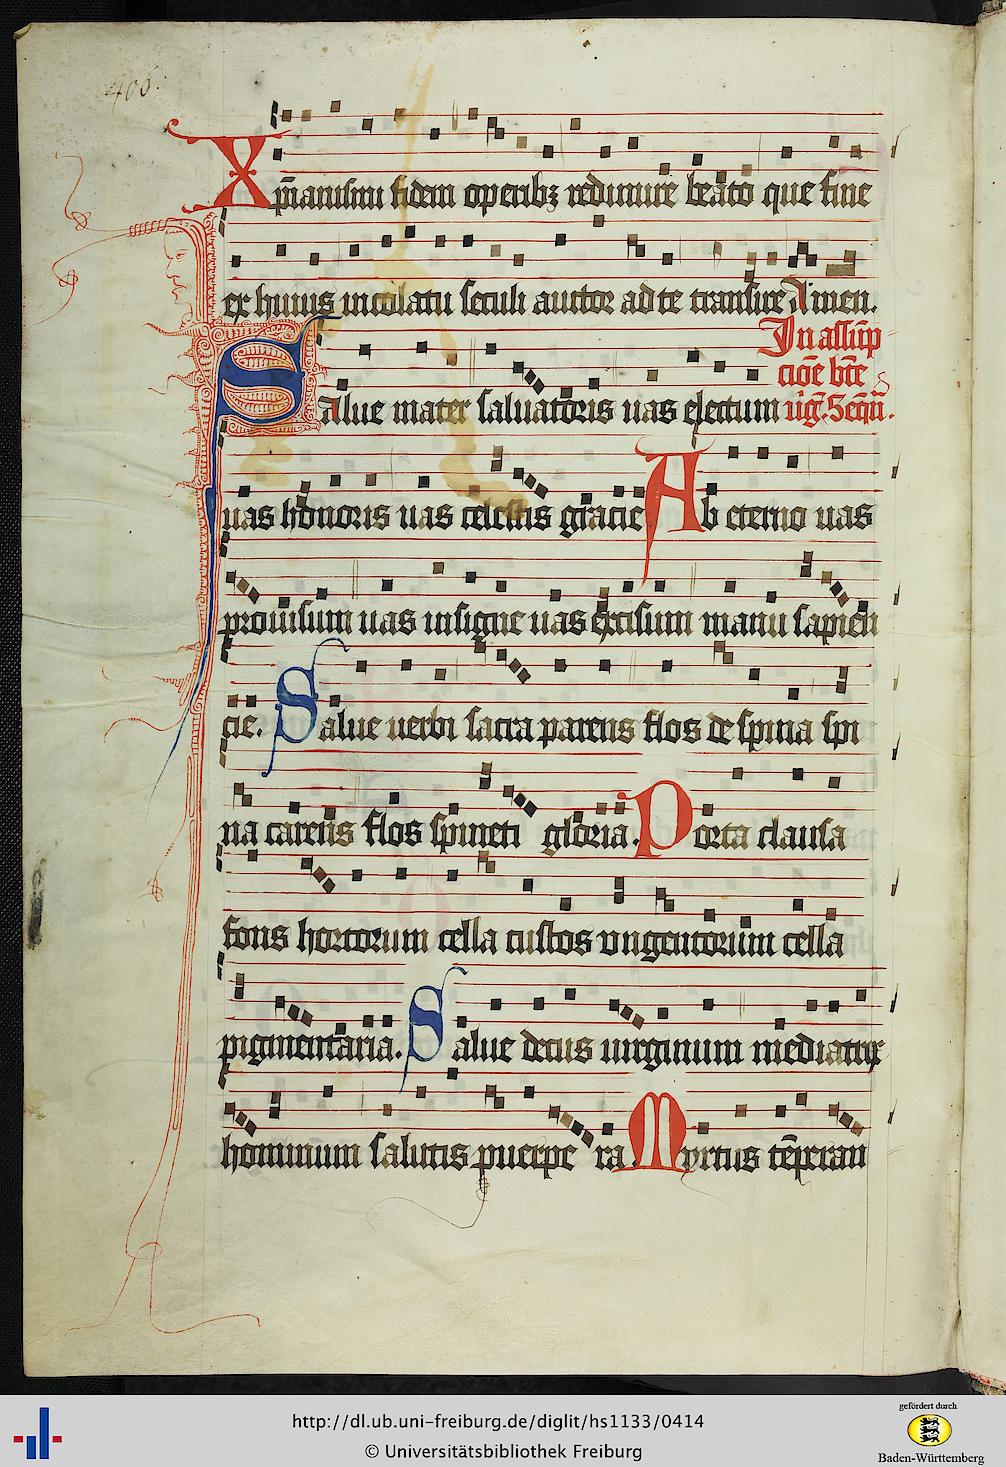 406.
Xp̄ianismi fidem operibꝫ redimire beato que fine
ex huius incolatu seculi auctor ad te transire Amen.
In assūp
cioē bt̄e
v̄ig. Seqū.
Salue mater saluatoris uas electum
uas honoris uas celestis gracie Ab eterno uas
prouisum uas insigne uas excisum manu sapien
cie. Salue uerbi sacra parens flos de spina spi
na carens flos spineti gloria. Porta clausa
fons hortorum cella custos vngentorum cella
pigmentaria. Salue decus uirginum mediatrix
hominum salutis puerpe ra Myrtus tēperan
http://dl.ub.uni-freiburg.de/diglit/hs1133/0414
© Universitätsbibliothek Freiburg
gefördert durch
Baden-Württemberg